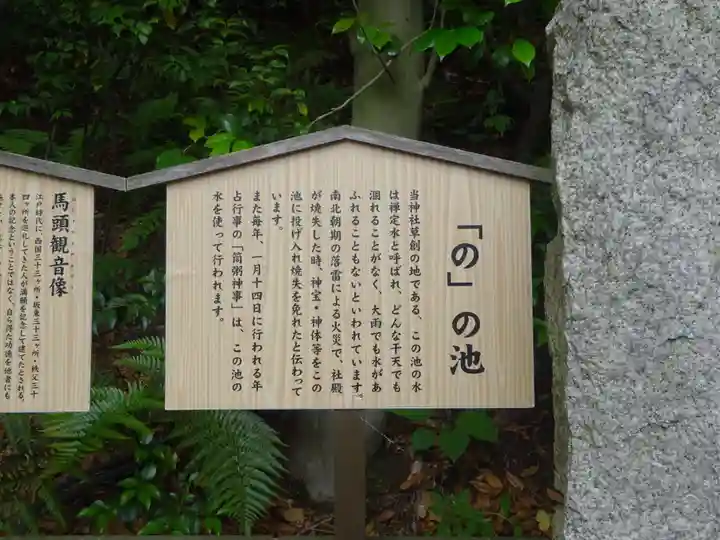 「の」の池
当神社草創の地である、この池の水
は禅定水と呼ばれ、どんな干天でも
涸れることがなく、大雨でも水があ
ふれることもないといわれています。
南北朝期の落雷による火災で、社殿
が焼失した時、神宝・神体等をこの
池に投げ入れ焼失を免れたと伝わって
います。
また毎年、一月十四日に行われる年
占行事の「筒粥神事」は、この池の
水を使って行われます。
馬頭観音像
江戸時代に、西国三十三ヶ所・坂東三十三ヶ所・秩父三十
四ヶ所を巡礼してきた人が満願を記念して建てたとされる。
本人の記念ということではなく、自ら得た功徳を他者にも